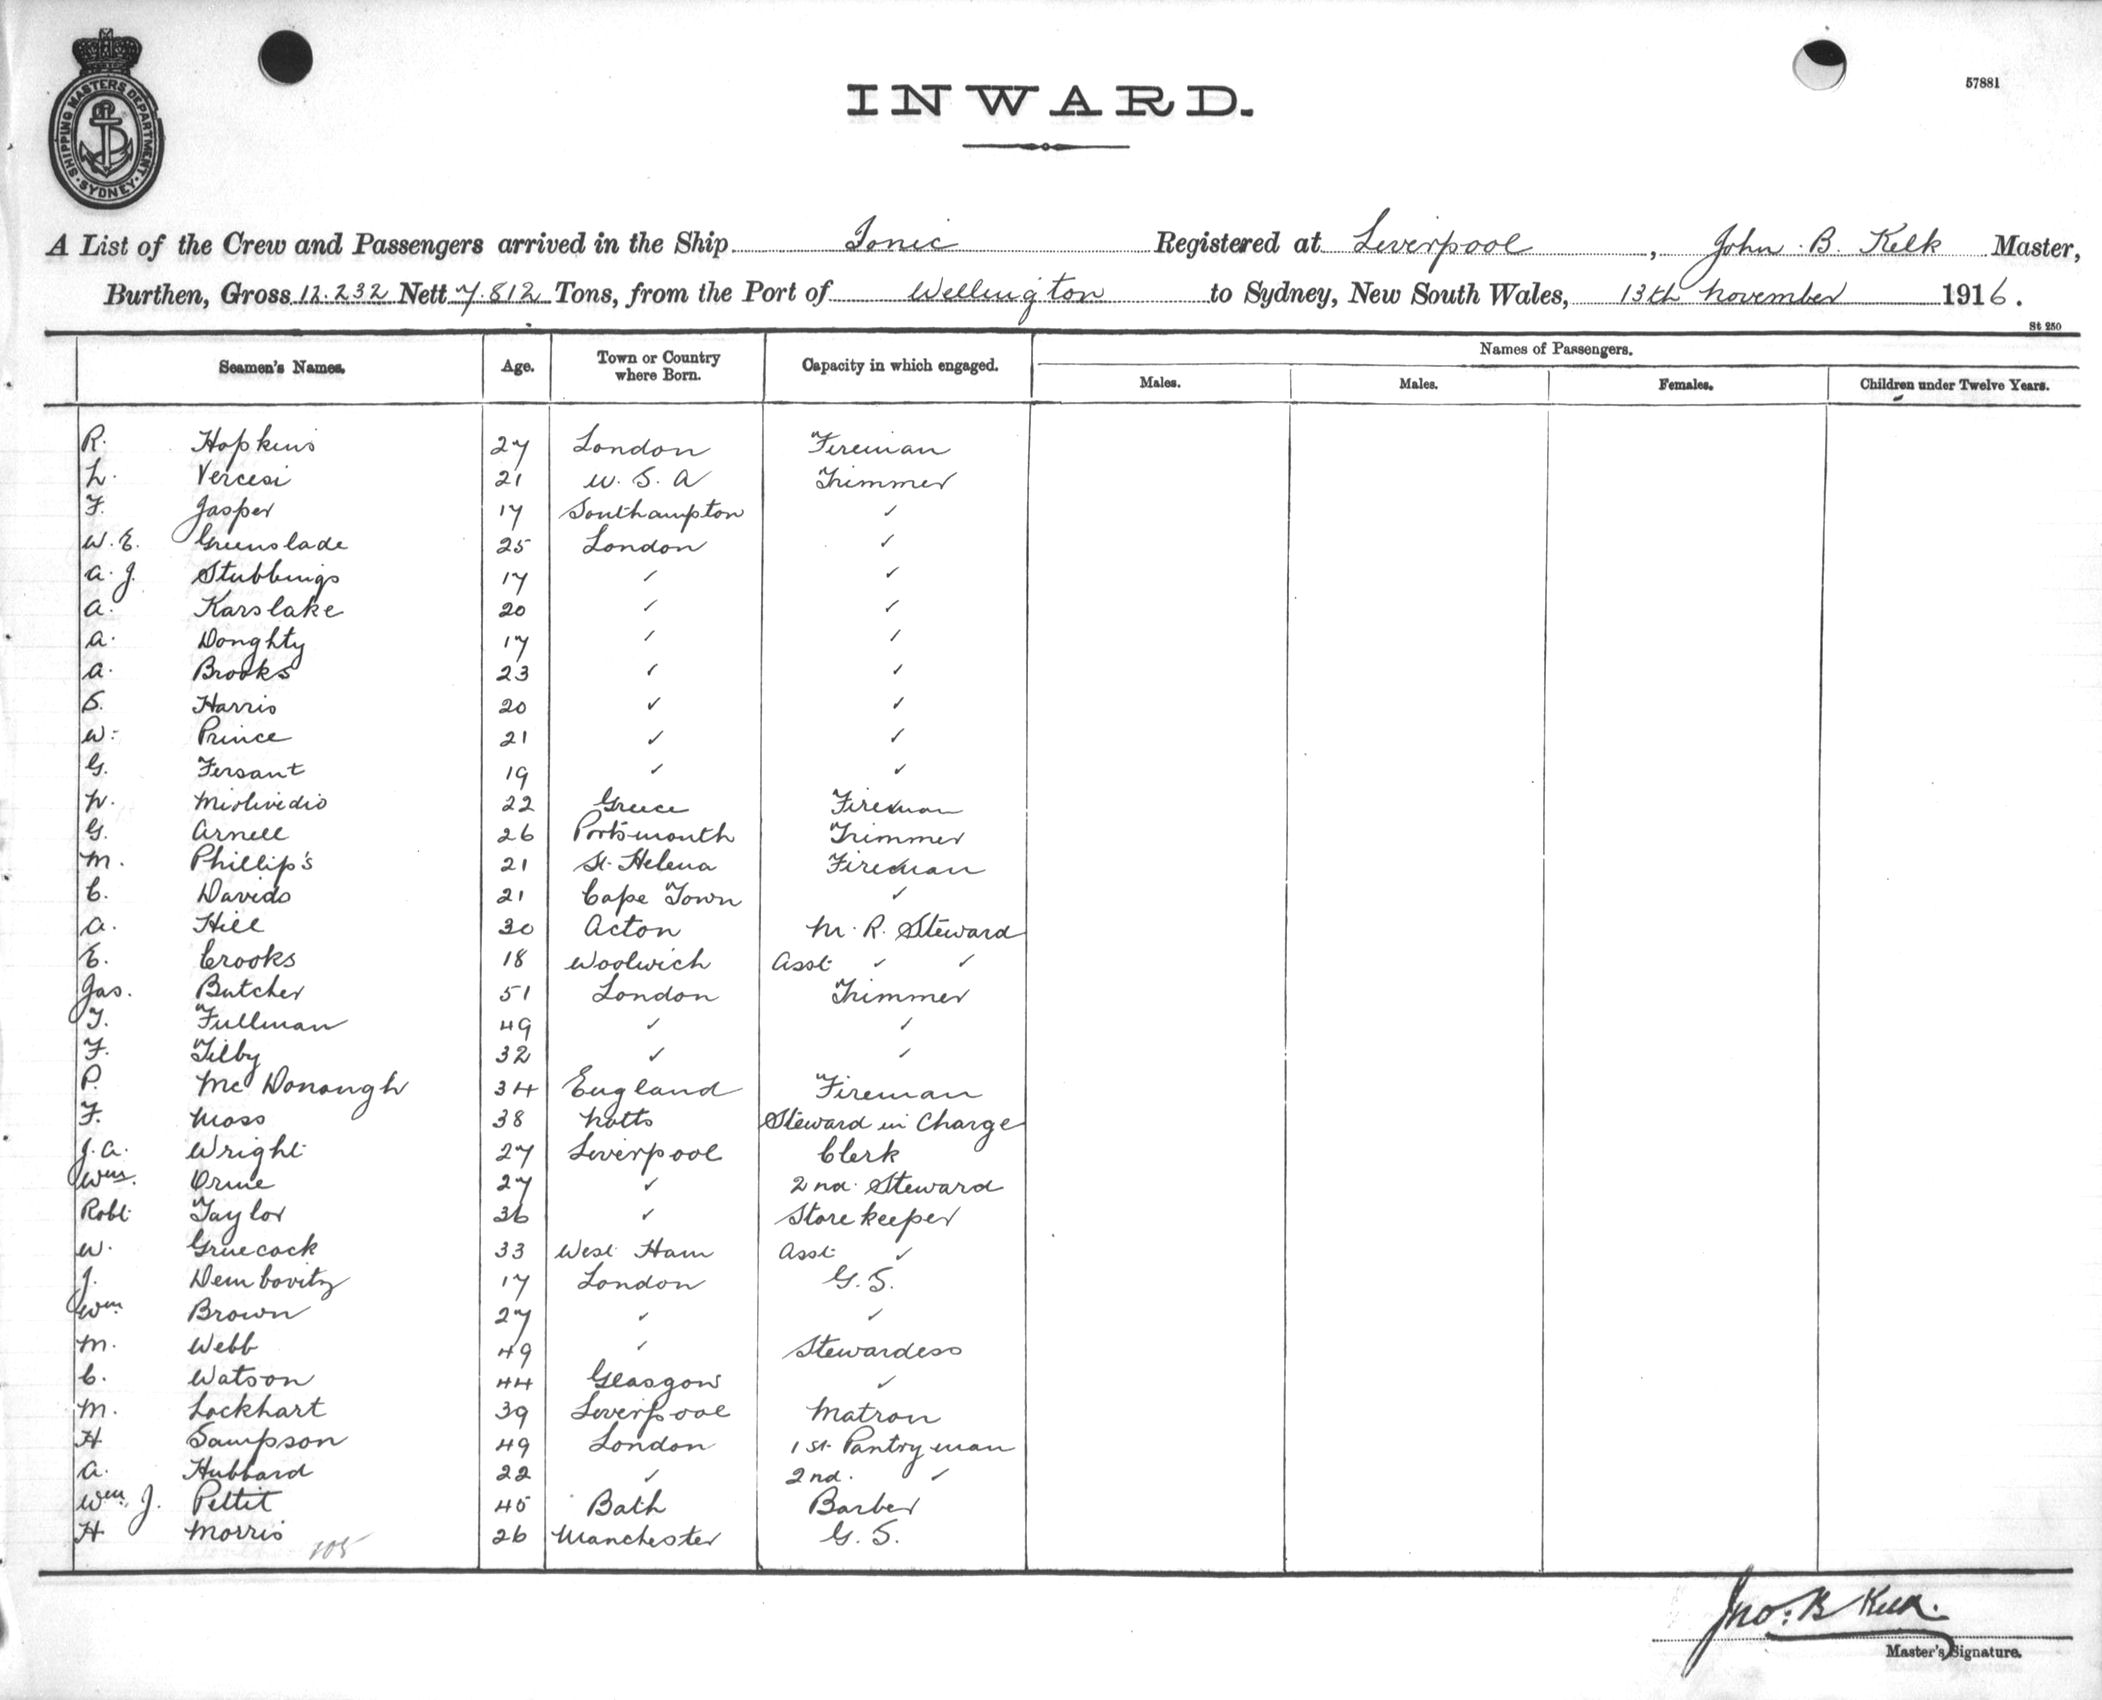 SHIPPING MASTERS DEPARTMENT. SYDNEY.
57881
INWARD.
A List of the Crew and Passengers arrived in the Ship Ionic Registered at Liverpool, John B. Kelk Master,
Burthen, Gross 12.232 Nett 7.812 Tons, from the Port of Wellington to Sydney, New South Wales, 13th November 1916.
St 250
Seamen's Names. Age. Town or Country where Born. Capacity in which engaged. Names of Passengers.
Males. Males. Females. Children under Twelve Years.
R. Hopkins 27 London Fireman
L. Vercesi 21 U. S. A Trimmer
F. Jasper 17 Southampton ✓
W. E. Greenslade 25 London ✓
A. J. Stubbings 17 ✓ ✓
A. Karslake 20 ✓ ✓
A. Doughty 17 ✓ ✓
A. Brooks 23 ✓ ✓
S. Harris 20 ✓ ✓
W. Prince 21 ✓ ✓
G. Fersant 19 ✓ ✓
22 Greece Fireman
G. Arnell 26 Portsmouth Trimmer
M. Phillip's 21 St. Helena Fireman
C. Davids 21 Cape Town ✓
A. Hill 30 Acton M. R. Steward
E. Crooks 18 Woolwich Asst ✓ ✓
Jas. Butcher 51 London Trimmer
T. Fullman 49 ✓ ✓
F. Tilby 32 ✓ ✓
P. McDonough 34 England Fireman
F. Moss 38 Notts Steward in Charge
J. A. Wright 27 Liverpool Clerk
Wm. Orme 27 ✓ 2nd. Steward
Robt Taylor 36 ✓ Storekeeper
W. Gruecock 33 West Ham Asst ✓
J. Dembovitz 17 London G. S.
Wm Brown 27 ✓ ✓
M. Webb 49 ✓ Stewardess
C. Watson 44 Glasgow ✓
M. Lockhart 39 Liverpool Matron
H Sampson 49 London 1st Pantryman
A. Hubbard 22 ✓ 2nd. ✓
Wm. J. Pettit 45 Bath Barber
H Morris 26 Manchester G. S.
105
Jno. B Kelk.
Master's Signature.